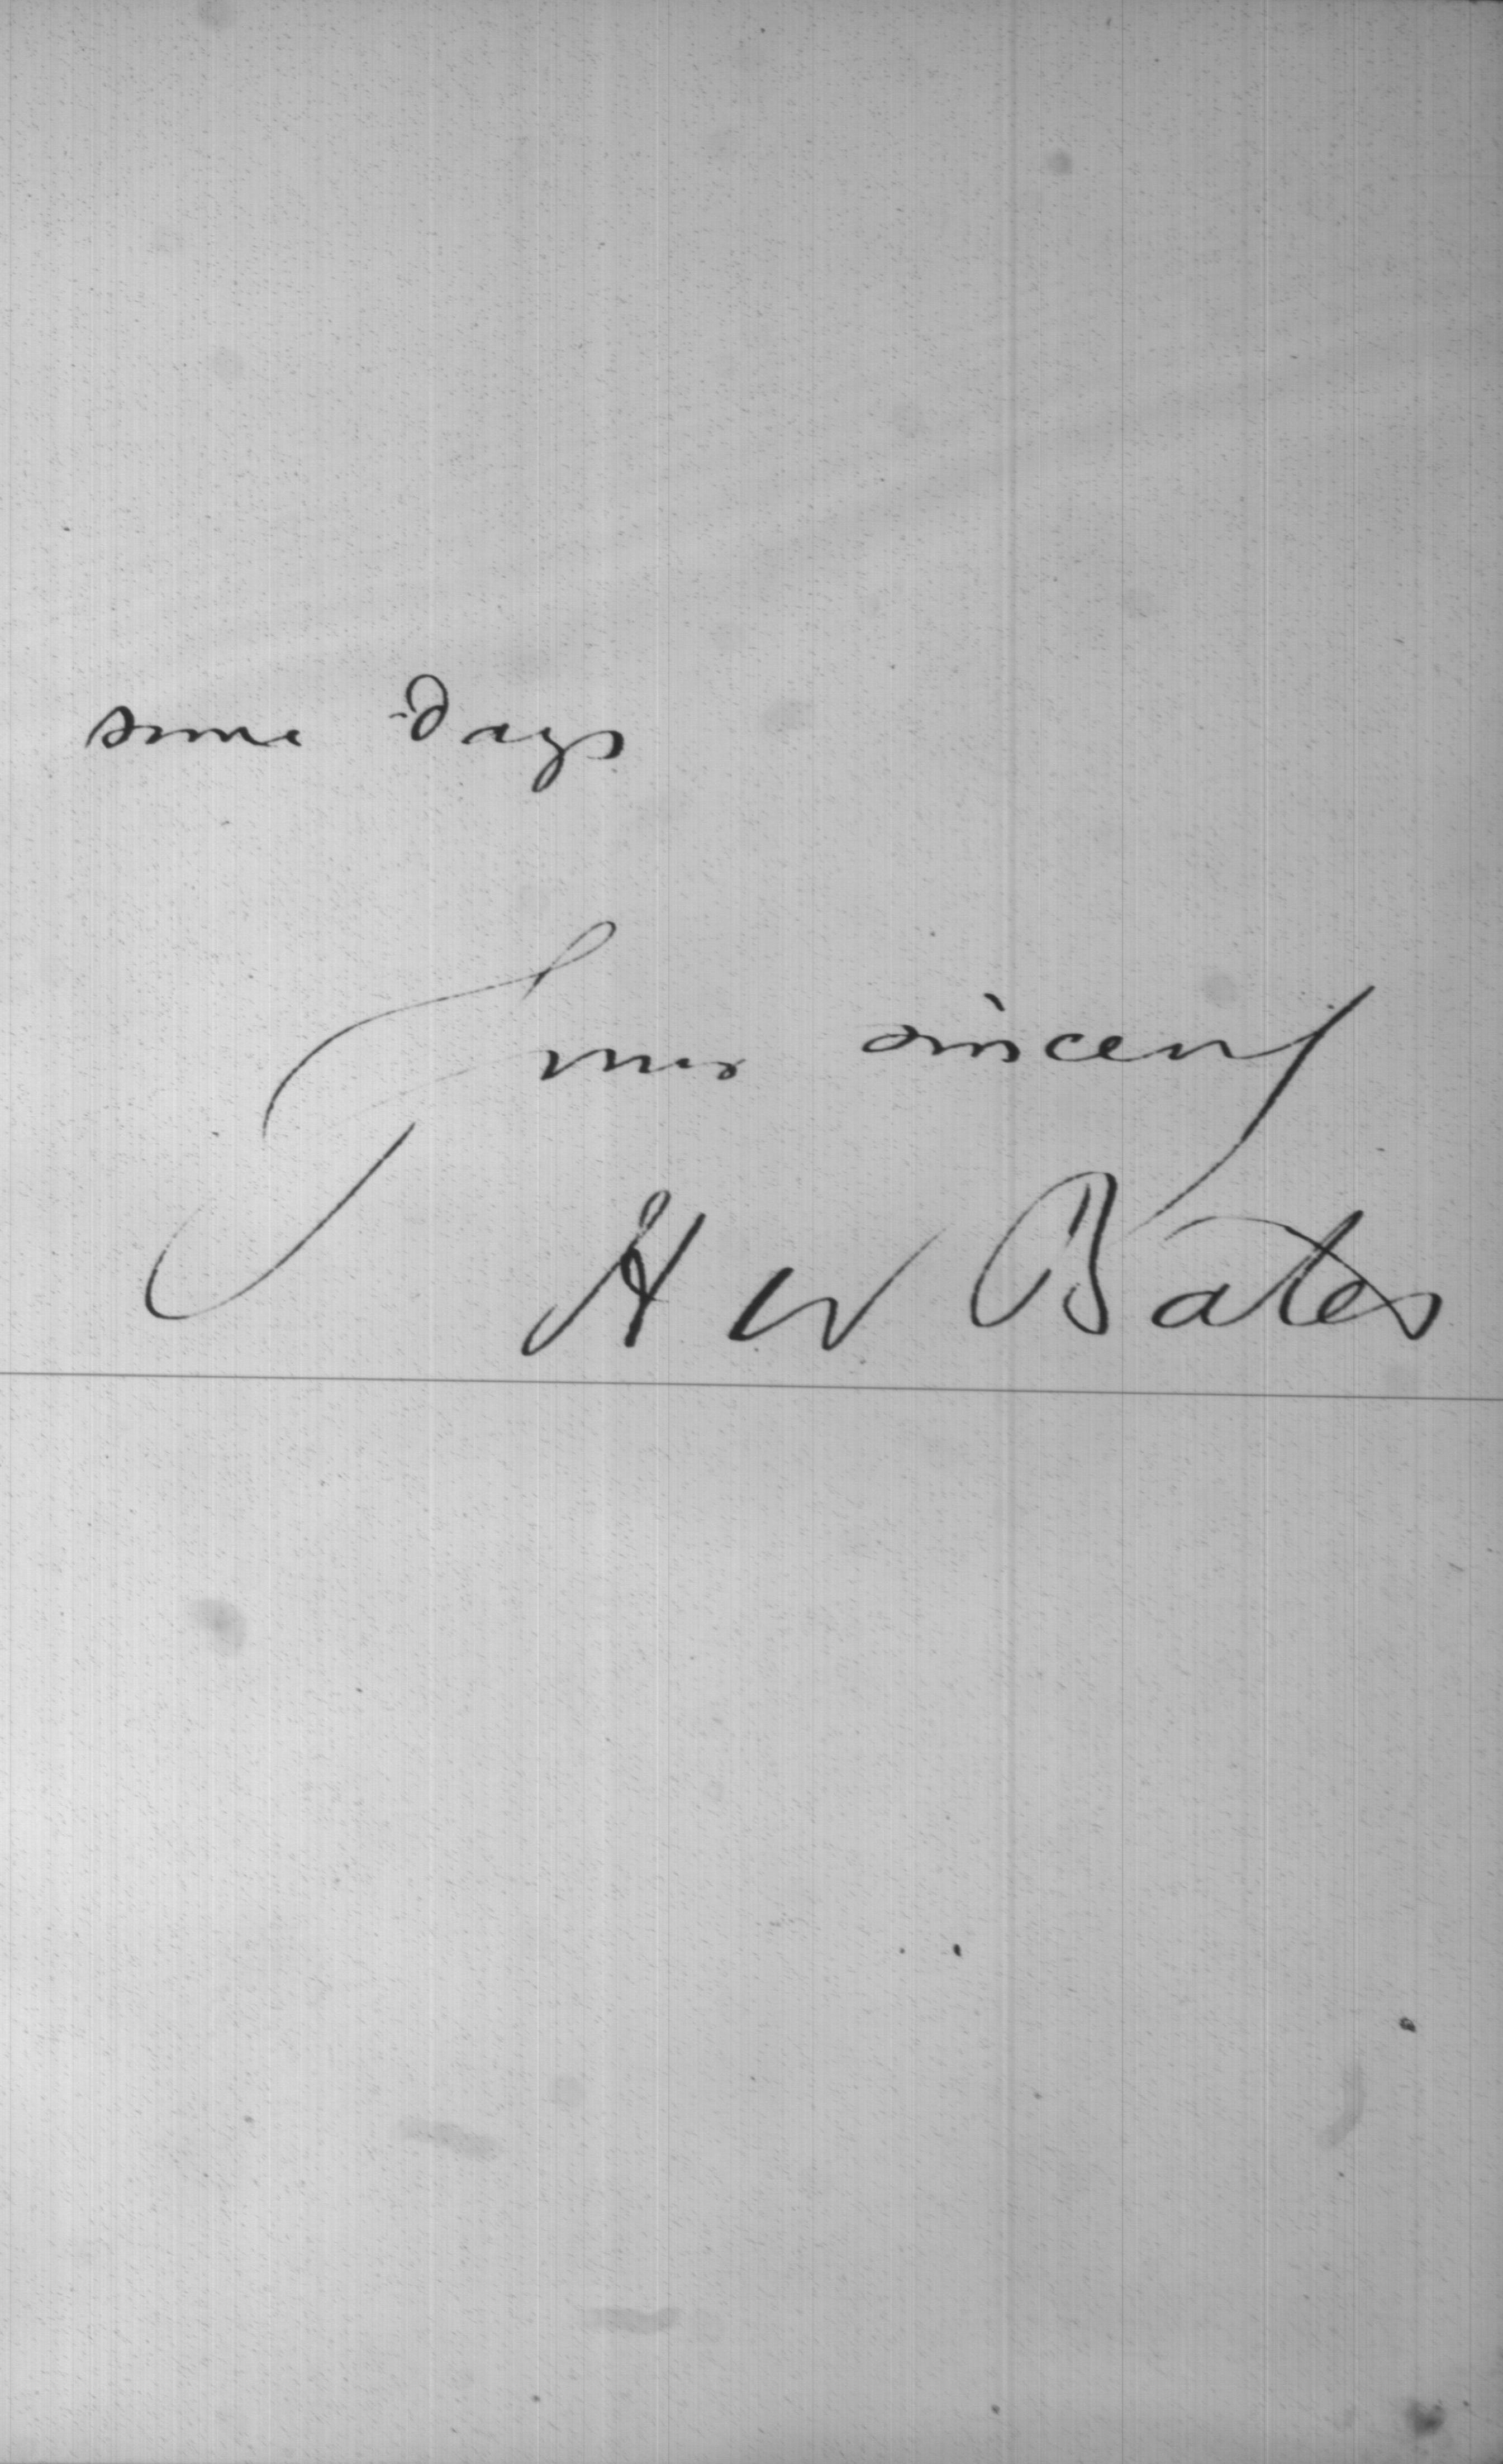 some days
Yours sincerely
H W Bates